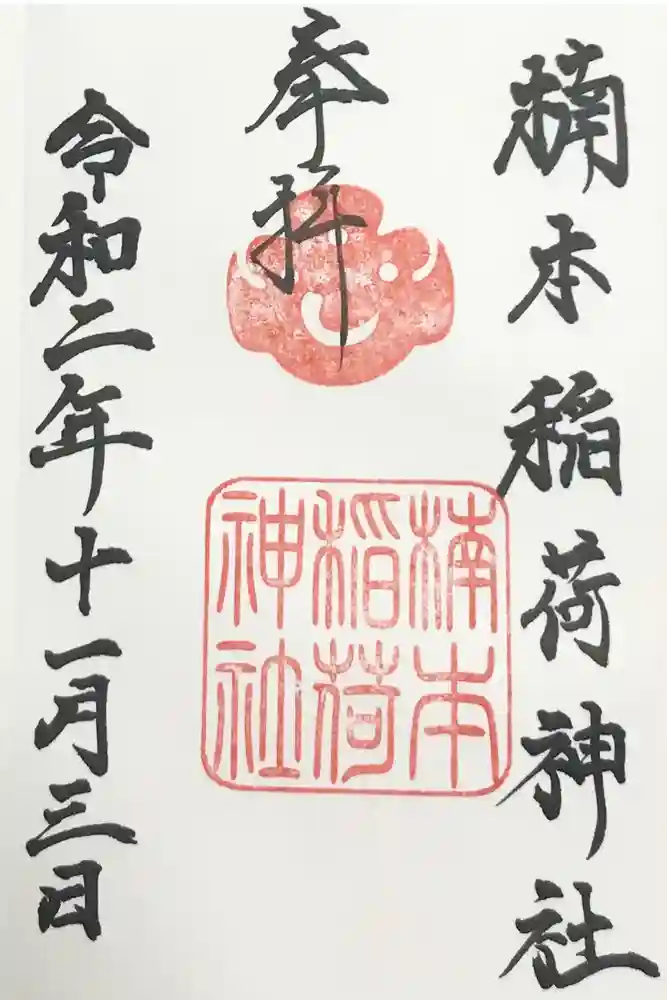 楠本稲荷神社
奉拝
楠本
稲荷
神社
令和二年十一月三日